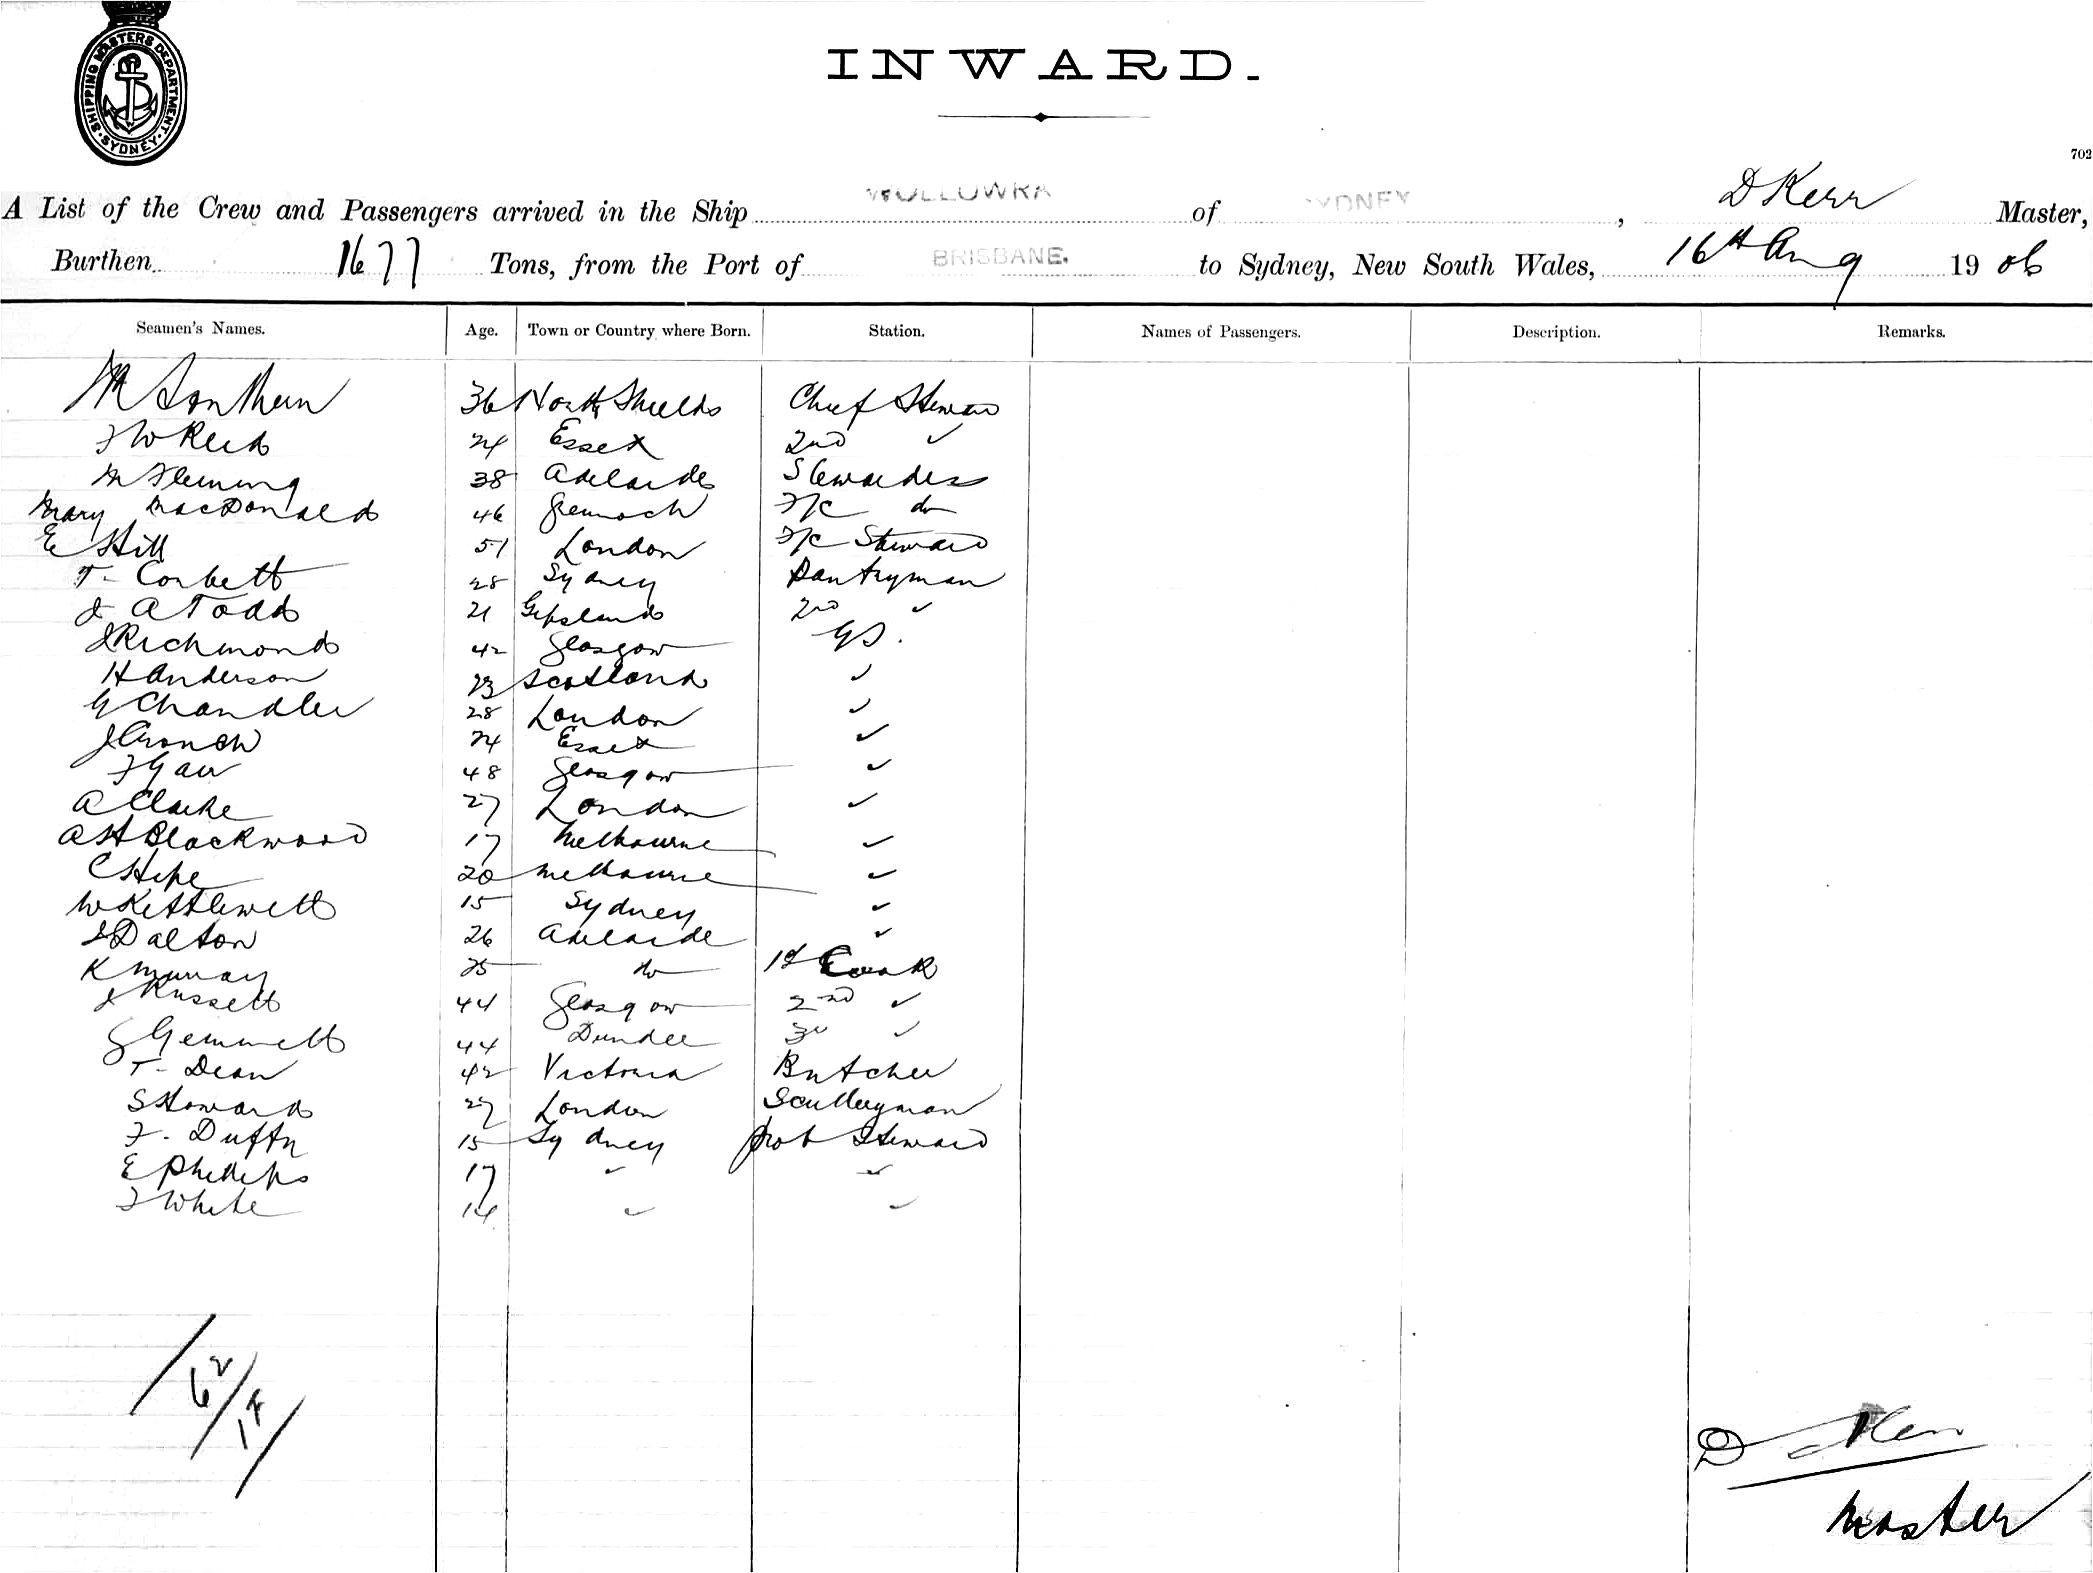 SHIPPING MASTERS DEPARTMENT. SYDNEY
INWARD.
702
A List of the Crew and Passengers arrived in the Ship WOLLOWRA of SYDNEY, D Kerr Master,
Burthen 1677 Tons, from the Port of BRISBANE. to Sydney, New South Wales, 16th Aug 1906
Seamen's Names. Age. Town or Country where Born. Station. Names of Passengers. Description. Remarks.
36 North Shields Chief Steward
F W Reid 24 Essex 2nd ✓
M Fleming 38 Adelaide Stewardess
Mary MacDonald 46 Greenock F/C do
E Hill 51 London F/C Steward
T- Corbett 28 Sydney Pantryman
J A Todd 21 Gipsland 2nd ✓
J Richmond 42 Glasgow GS.
H Anderson 23 Scotland ✓
G Chandler 28 London ✓
J Cronch 24 Essex ✓
F Gair 48 Glasgow ✓
A Clarke 27 London ✓
A H Blackwood 17 Melbourne ✓
C Hipe 20 Melbourne ✓
W Kettlewell 15 Sydney ✓
J Dalton 26 Adelaide ✓
K Murray 25 do 1st Cook
J Russell 44 Glasgow 2nd ✓
G Gemmell 44 Dundee 3rd ✓
T- Dean 42 Victoria Butcher
S Howard 27 London Sculleryman
F. Duffy 15 Sydney Prob Steward
E Phillips 17 ✓ ✓
F White 14 ✓ ✓
62/
D Kerr
Master